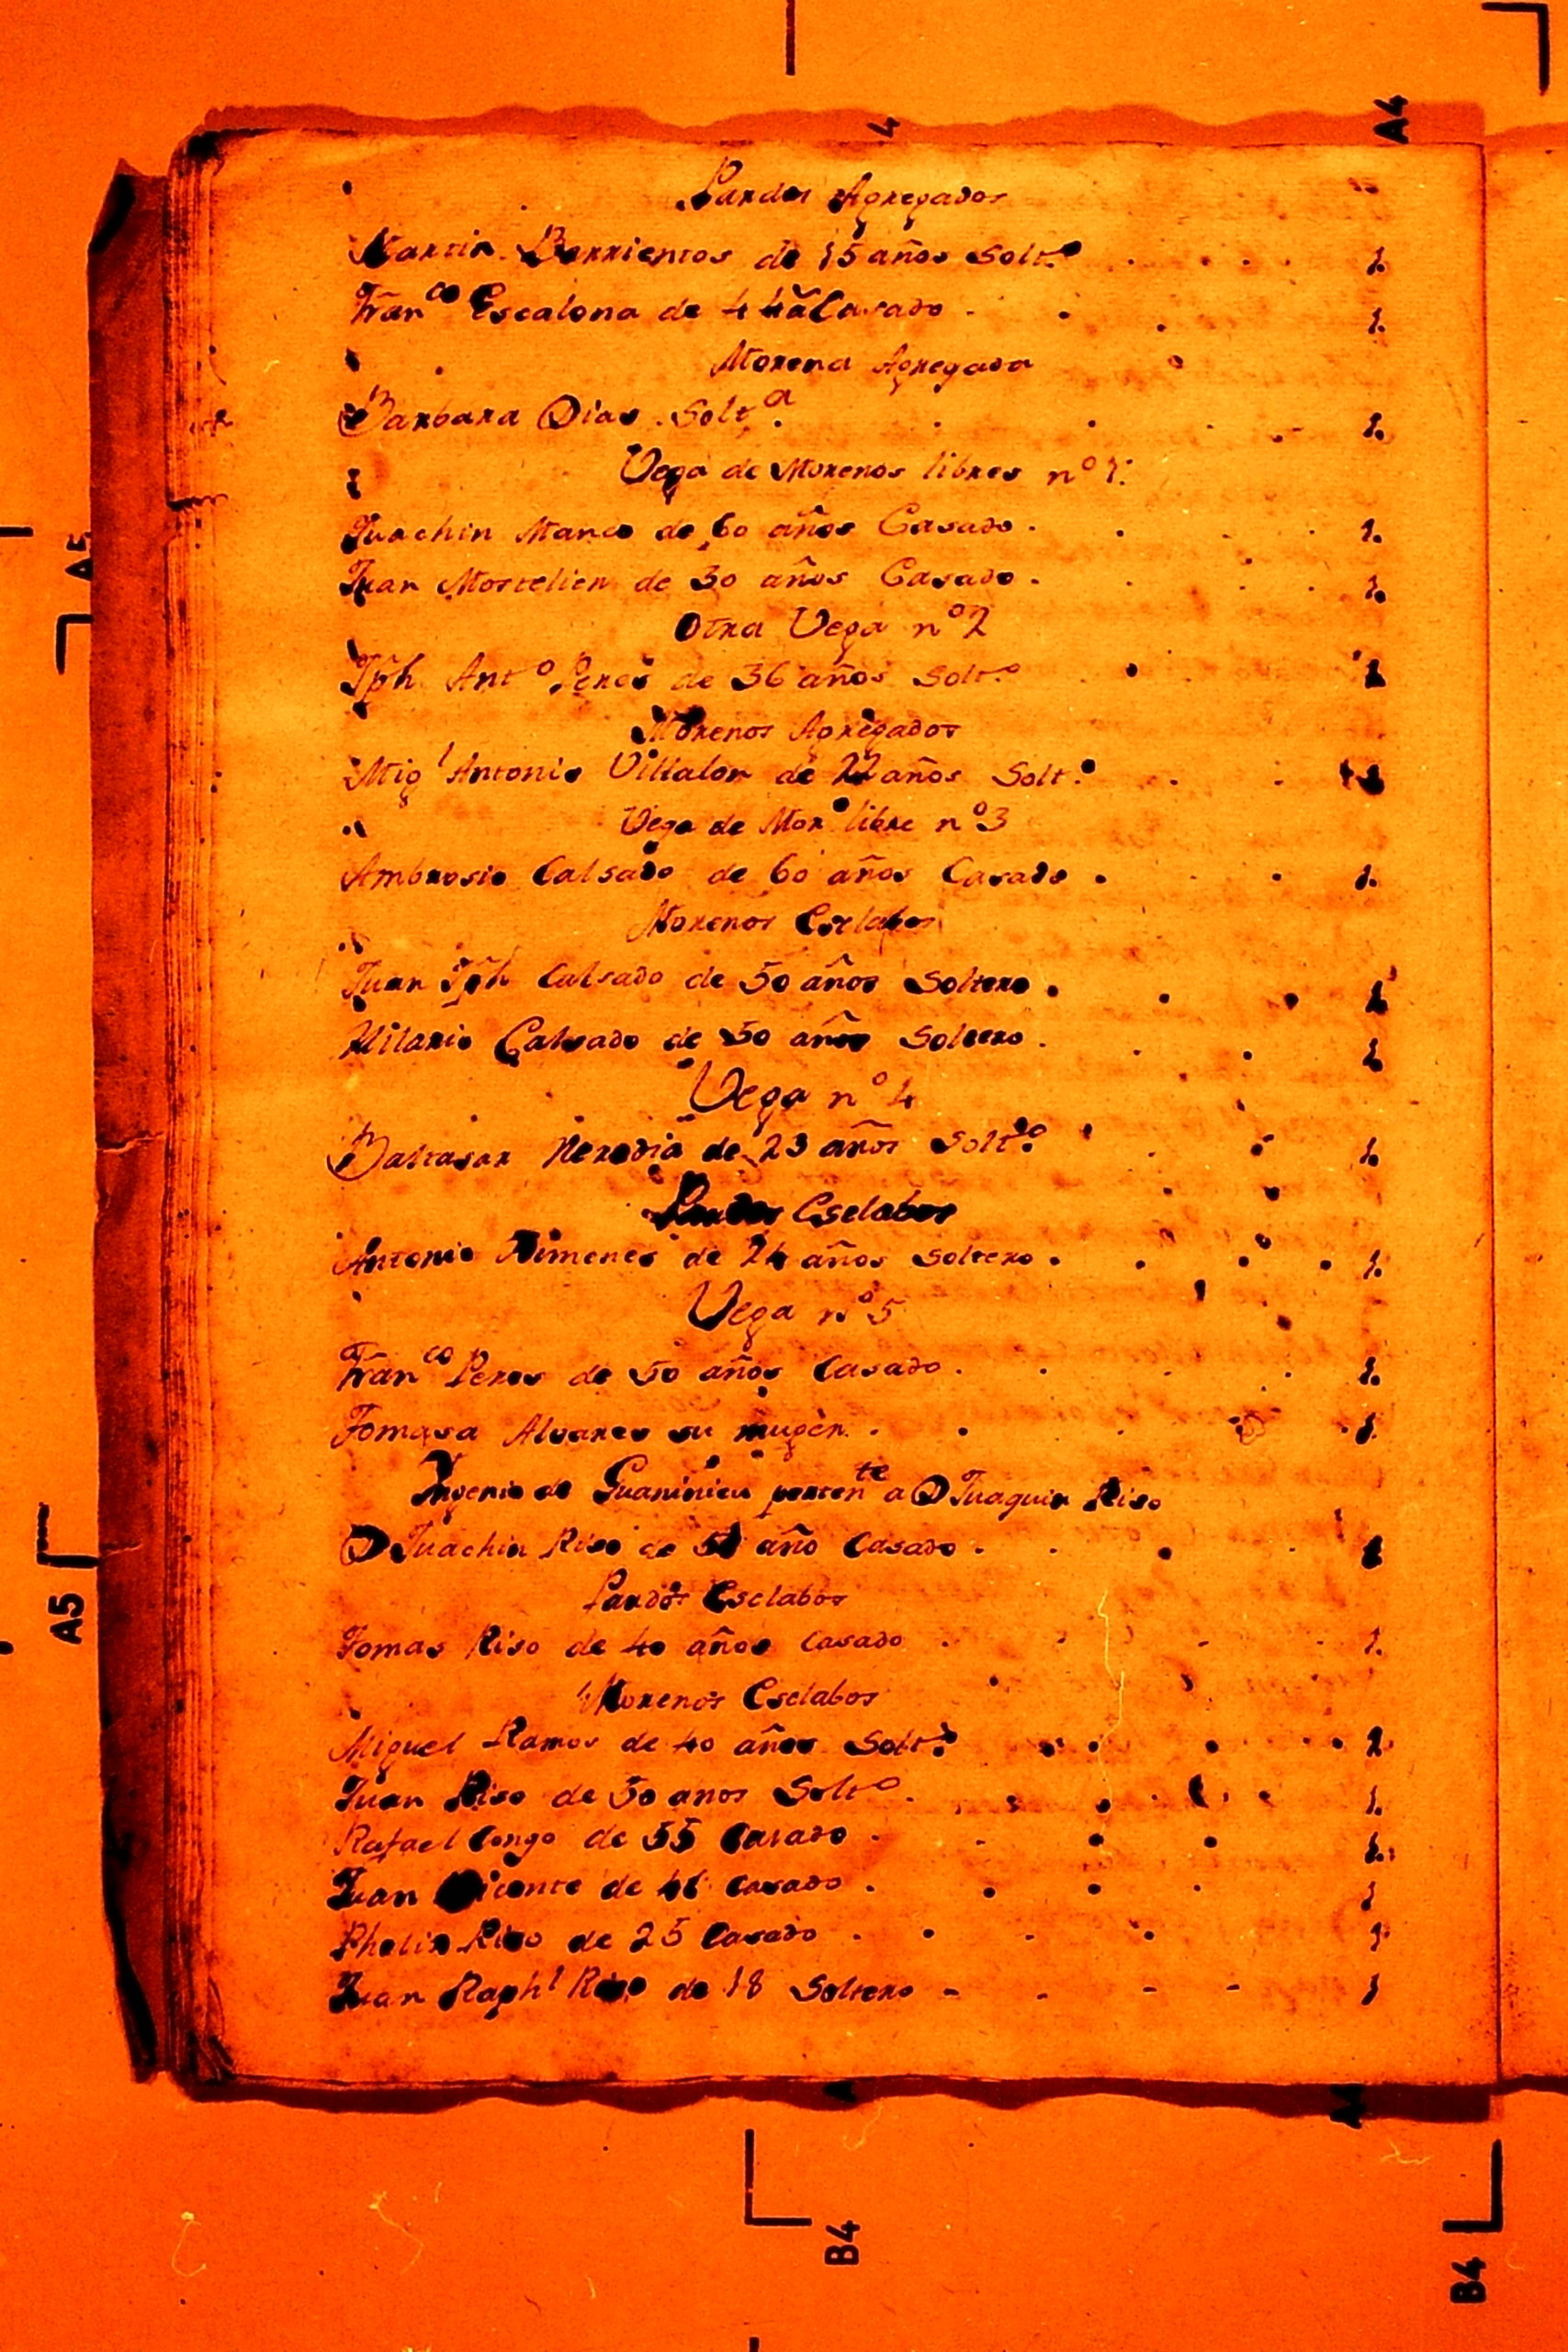 4
A4
Pardos Agregados
Martin Barrientos de 15 años Solt.o 1.
Franco Escalona de 44 a Casado 1.
Morena Agregada
Barbara Dias Solta 1.
Vega de Morenos libres no 1.
Juachin Manco de 60 años Casado. 1.
Juan de 30 años Casado. 1.
Otra Vega no 2
Jph Anto Peres de 36 años Solt.o 1
Morenos Agregados
Migl Antonio Villalon de 22 años Solt.o 1
Vega de Moro libre no 3
Ambrosio Calsado de 60 años Casado. 1.
Morenos Esclabos
Juan Jph Calsado de 50 años Soltero. 1
Hilario Calsado de 50 años Soltero. 1
Vega no 4
Baltasar Heredia de 23 años Solt.o 1.
Pardos Esclabos
Antonio Ximenes de 24 años Soltero. 1.
Vega no 5
Franco Peres de 50 años Casado. 1.
Tomasa Alvares su muger. 1.
Yngenio de pertente a D Juaquin Riso
D Juachin Riso de año Casado. 1
Pardos Esclabos
Tomas Riso de 40 años Casado 1.
Morenos Esclabos
Miguel Ramos de 40 años Solt.o 1.
Juan Riso de 50 anos Solto. 1.
Rafael Congo de 55 Casado. 1.
Juan Vicente de 46 Casado. 1
Phelix Riso de 25 Casado 1
Juan Raphl Riso de 18 Soltero 1
A5
A5
B4
B4